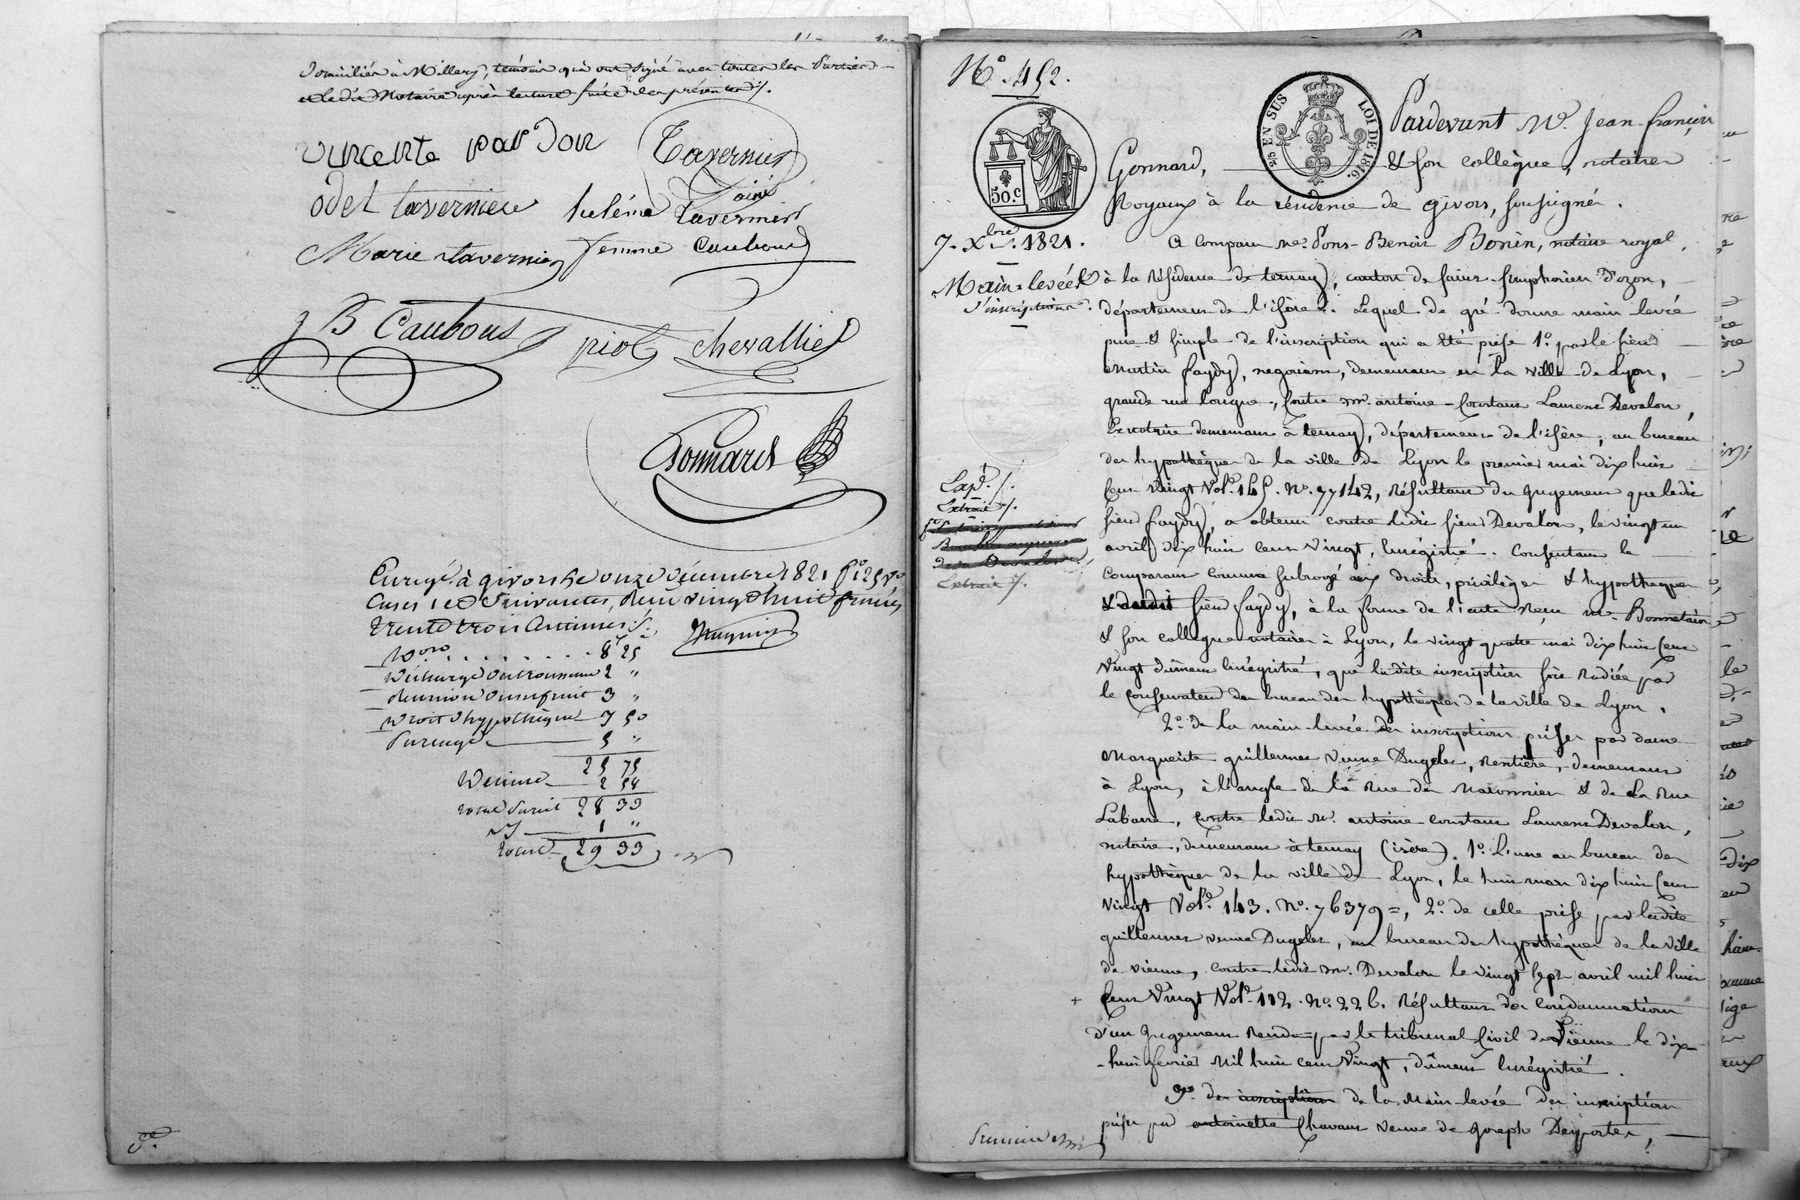 domiciliés à Millery, témoins qui ont signé avec toutes les Parties
et ledit Notaire après lecture faite des présentes ./.
vincente pardon
Tavernier
ainé
odet tavernier helène tavernier
Marie tavernier femme Caubous
J B Caubous piot chevallier
Gonnard
Enregé. à givors le onze décembre 1821 fo. 125 vo
Cases 1 et suivantes, Reçu vingt huit francs
trente trois centimes ./.
8 25
Décharge 2 "
Réunion d'usufruit 3 "
Droit d'hypothèque 7 50
Partage 5 "
25 75
Décime 2 58
28 33
1 "
29 33
No. 452.
EN SUS LOI DE 1816.
50 c
Pardevant Me. Jean françois
Gonnard, & son collègue, notaires
Royaux à la résidence de givors, soussignés.
7. Xbre. 1821.
Main-levée
d'inscriptions.
A comparu Me. Pons-Benoit Bonin, notaire royal,
à la Résidence de ternay, canton de saint-symphorien d'ozon,
département de l'isère. Lequel de gré donne main levée
pure & simple de l'inscription qui a été prise 1o. par le sieur
Martin faydy, negociant, demeurant en la ville de Lyon,
grande rue longue, contre mr. antoine-Constant Laurent Devalon,
notaire demeurant à ternay, département de l'isère, au bureau
des hypothèques de la ville de Lyon le premier mai dix huit
cent vingt Vol. 145. No. 77142, Résultant du jugement que ledit
sieur faydy, a obtenu contre ledit sieur Devalon, le vingt un
avril dix huit cent vingt, Enrégistré. Consentant le
Comparant comme subrogé aux droits, privilèges & hypothèques
dudit sieur faydy, à la forme de l'acte reçu Me. Bonnetain
& son collègue notaires à Lyon, le vingt quatre mai dix huit cent
vingt dûment Enrégistré, que ladite inscription soit Radiée par
le conservateur du bureau des hypothèques de la ville de Lyon.
2o. de la main levée des inscriptions prises par dame
Marguerite guillermet veuve Dugelet, Rentière, demeurant
à Lyon, à l'angle de la Rue des Maronniers & de la Rue
Labarre, contre ledit Mr. antoine constant Laurent Devalon,
notaire, demeurant à ternay (isère). 1o. l'une au bureau des
hypothèques de la ville de Lyon, le huit mars dix huit cent
vingt Vol. 143. No. 76379 =, 2o. de celle prise par ladite
guillermet veuve Dugelet, au bureau des hypothèques de la ville
de vienne, contre ledit mr. Devalon le vingt sept avril mil huit
+ cent vingt Vol. 112. No. 226. Résultant des condamnations
d'un jugement Rendu par le tribunal Civil de Vienne le dix-
-huit février Mil huit cent Vingt, dûment Enrégistré.
3o. des inscriptions de la Main-levée des inscriptions
prises par antoinette Chavant veuve de joseph Desportes,
Expé. /.
Extrait /.
Extrait /.